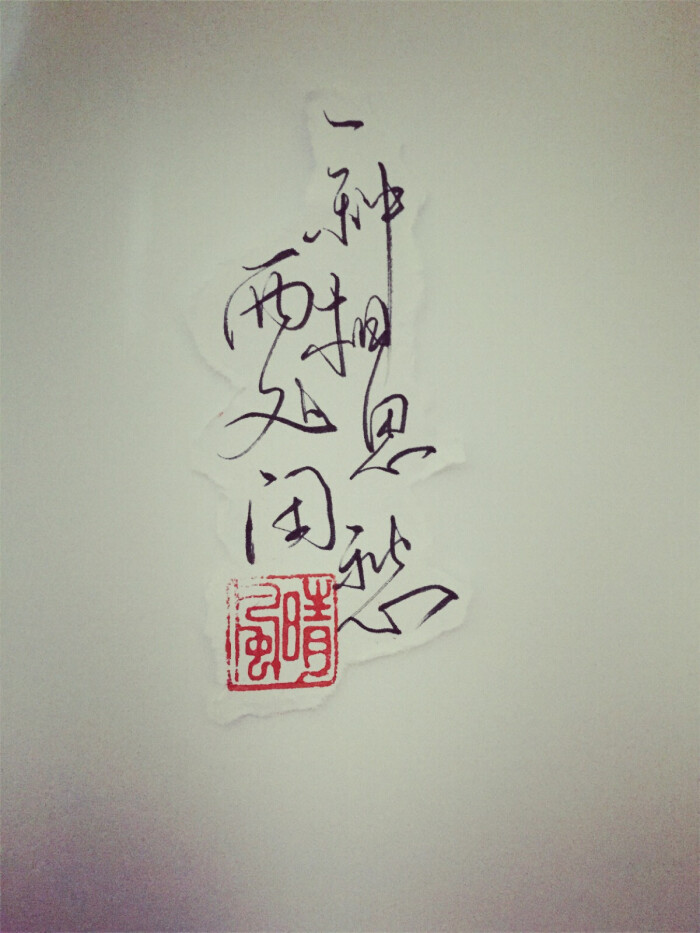 一种相思
两处闲愁
晴風